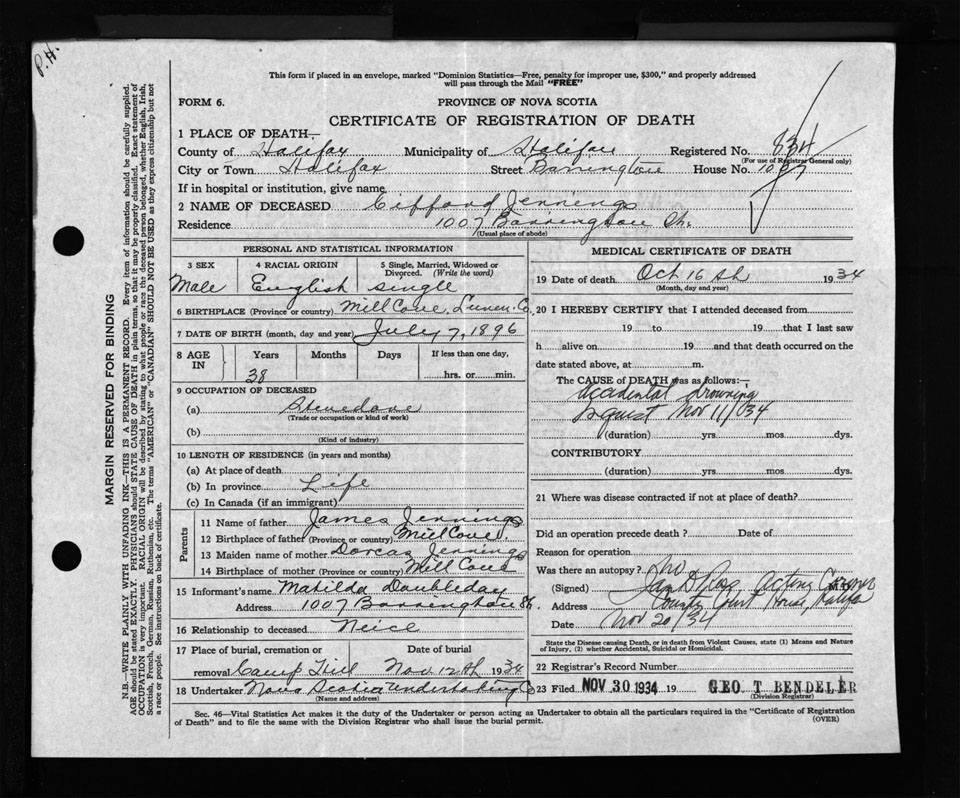 P.H.
This form if placed in an envelope, marked "Dominion Statistics—Free, penalty for improper use, $300," and properly addressed
will pass through the Mail "FREE"
FORM 6. PROVINCE OF NOVA SCOTIA
CERTIFICATE OF REGISTRATION OF DEATH
1 PLACE OF DEATH—
County of Halifax Municipality of Halifax Registered No. 834
(For use of Registrar General only)
City or Town Halifax Street Barrington House No. 1007
If in hospital or institution, give name
2 NAME OF DECEASED Cifford Jennings
Residence 1007 Barrington St.
(Usual place of abode)
PERSONAL AND STATISTICAL INFORMATION
3 SEX 4 RACIAL ORIGIN 5 Single, Married, Widowed or
Divorced. (Write the word)
Male English single
6 BIRTHPLACE (Province or country) Mill Cove, Lunen. Co.
7 DATE OF BIRTH (month, day and year) July 7, 1896
8 AGE IN Years Months Days If less than one day,
38 hrs. or min.
9 OCCUPATION OF DECEASED
(a) Stevedore
(Trade or occupation or kind of work)
(b)
(Kind of industry)
10 LENGTH OF RESIDENCE (in years and months)
(a) At place of death
(b) In province Life
(c) In Canada (if an immigrant)
Parents
11 Name of father James Jennings
12 Birthplace of father (Province or country) Mill Cove
13 Maiden name of mother Dorcas Jennings
14 Birthplace of mother (Province or country) Mill Cove
15 Informant's name Matilda Doubleday
Address 1007 Barrington St.
16 Relationship to deceased Neice
17 Place of burial, cremation or removal Date of burial
Camp Hill Nov 12th 1934
18 Undertaker Nova Scotia Undertaking Co
(Name and address)
MEDICAL CERTIFICATE OF DEATH
19 Date of death Oct 16th 1934
(Month, day and year)
20 I HEREBY CERTIFY that I attended deceased from
19 to 19 that I last saw
h alive on 19 and that death occurred on the
date stated above, at m.
The CAUSE of DEATH was as follows:—
Accidental drowning
Inquest Nov 11/34
(duration) yrs. mos. dys.
CONTRIBUTORY
(duration) yrs. mos. dys.
21 Where was disease contracted if not at place of death?
Did an operation precede death? Date of
Reason for operation
Was there an autopsy? no
(Signed) Acting Coroner
Address County Court House, Halifax
Date Nov 20/34
State the Disease causing Death, or in death from Violent Causes, state (1) Means and Nature
of Injury, (2) whether Accidental, Suicidal or Homicidal.
22 Registrar's Record Number
23 Filed NOV 30 1934 19 GEO. T BENDELER
(Division Registrar)
Sec. 46—Vital Statistics Act makes it the duty of the Undertaker or person acting as Undertaker to obtain all the particulars required in the "Certificate of Registration
of Death" and to file the same with the Division Registrar who shall issue the burial permit. (OVER)
MARGIN RESERVED FOR BINDING
N.B.—WRITE PLAINLY WITH UNFADING INK—THIS IS A PERMANENT RECORD. Every item of information should be carefully supplied.
AGE should be stated EXACTLY. PHYSICIANS should STATE CAUSE OF DEATH in plain terms, so that it may be properly classified. Exact statement of
OCCUPATION is very important. RACIAL ORIGIN will be described by stating to what people or race the deceased person belonged, whether English, Irish,
Scottish, French, German, Russian, Ruthenian, etc. The terms "AMERICAN" or "CANADIAN" SHOULD NOT BE USED as they express citizenship but not
a race or people. See instructions on back of certificate.